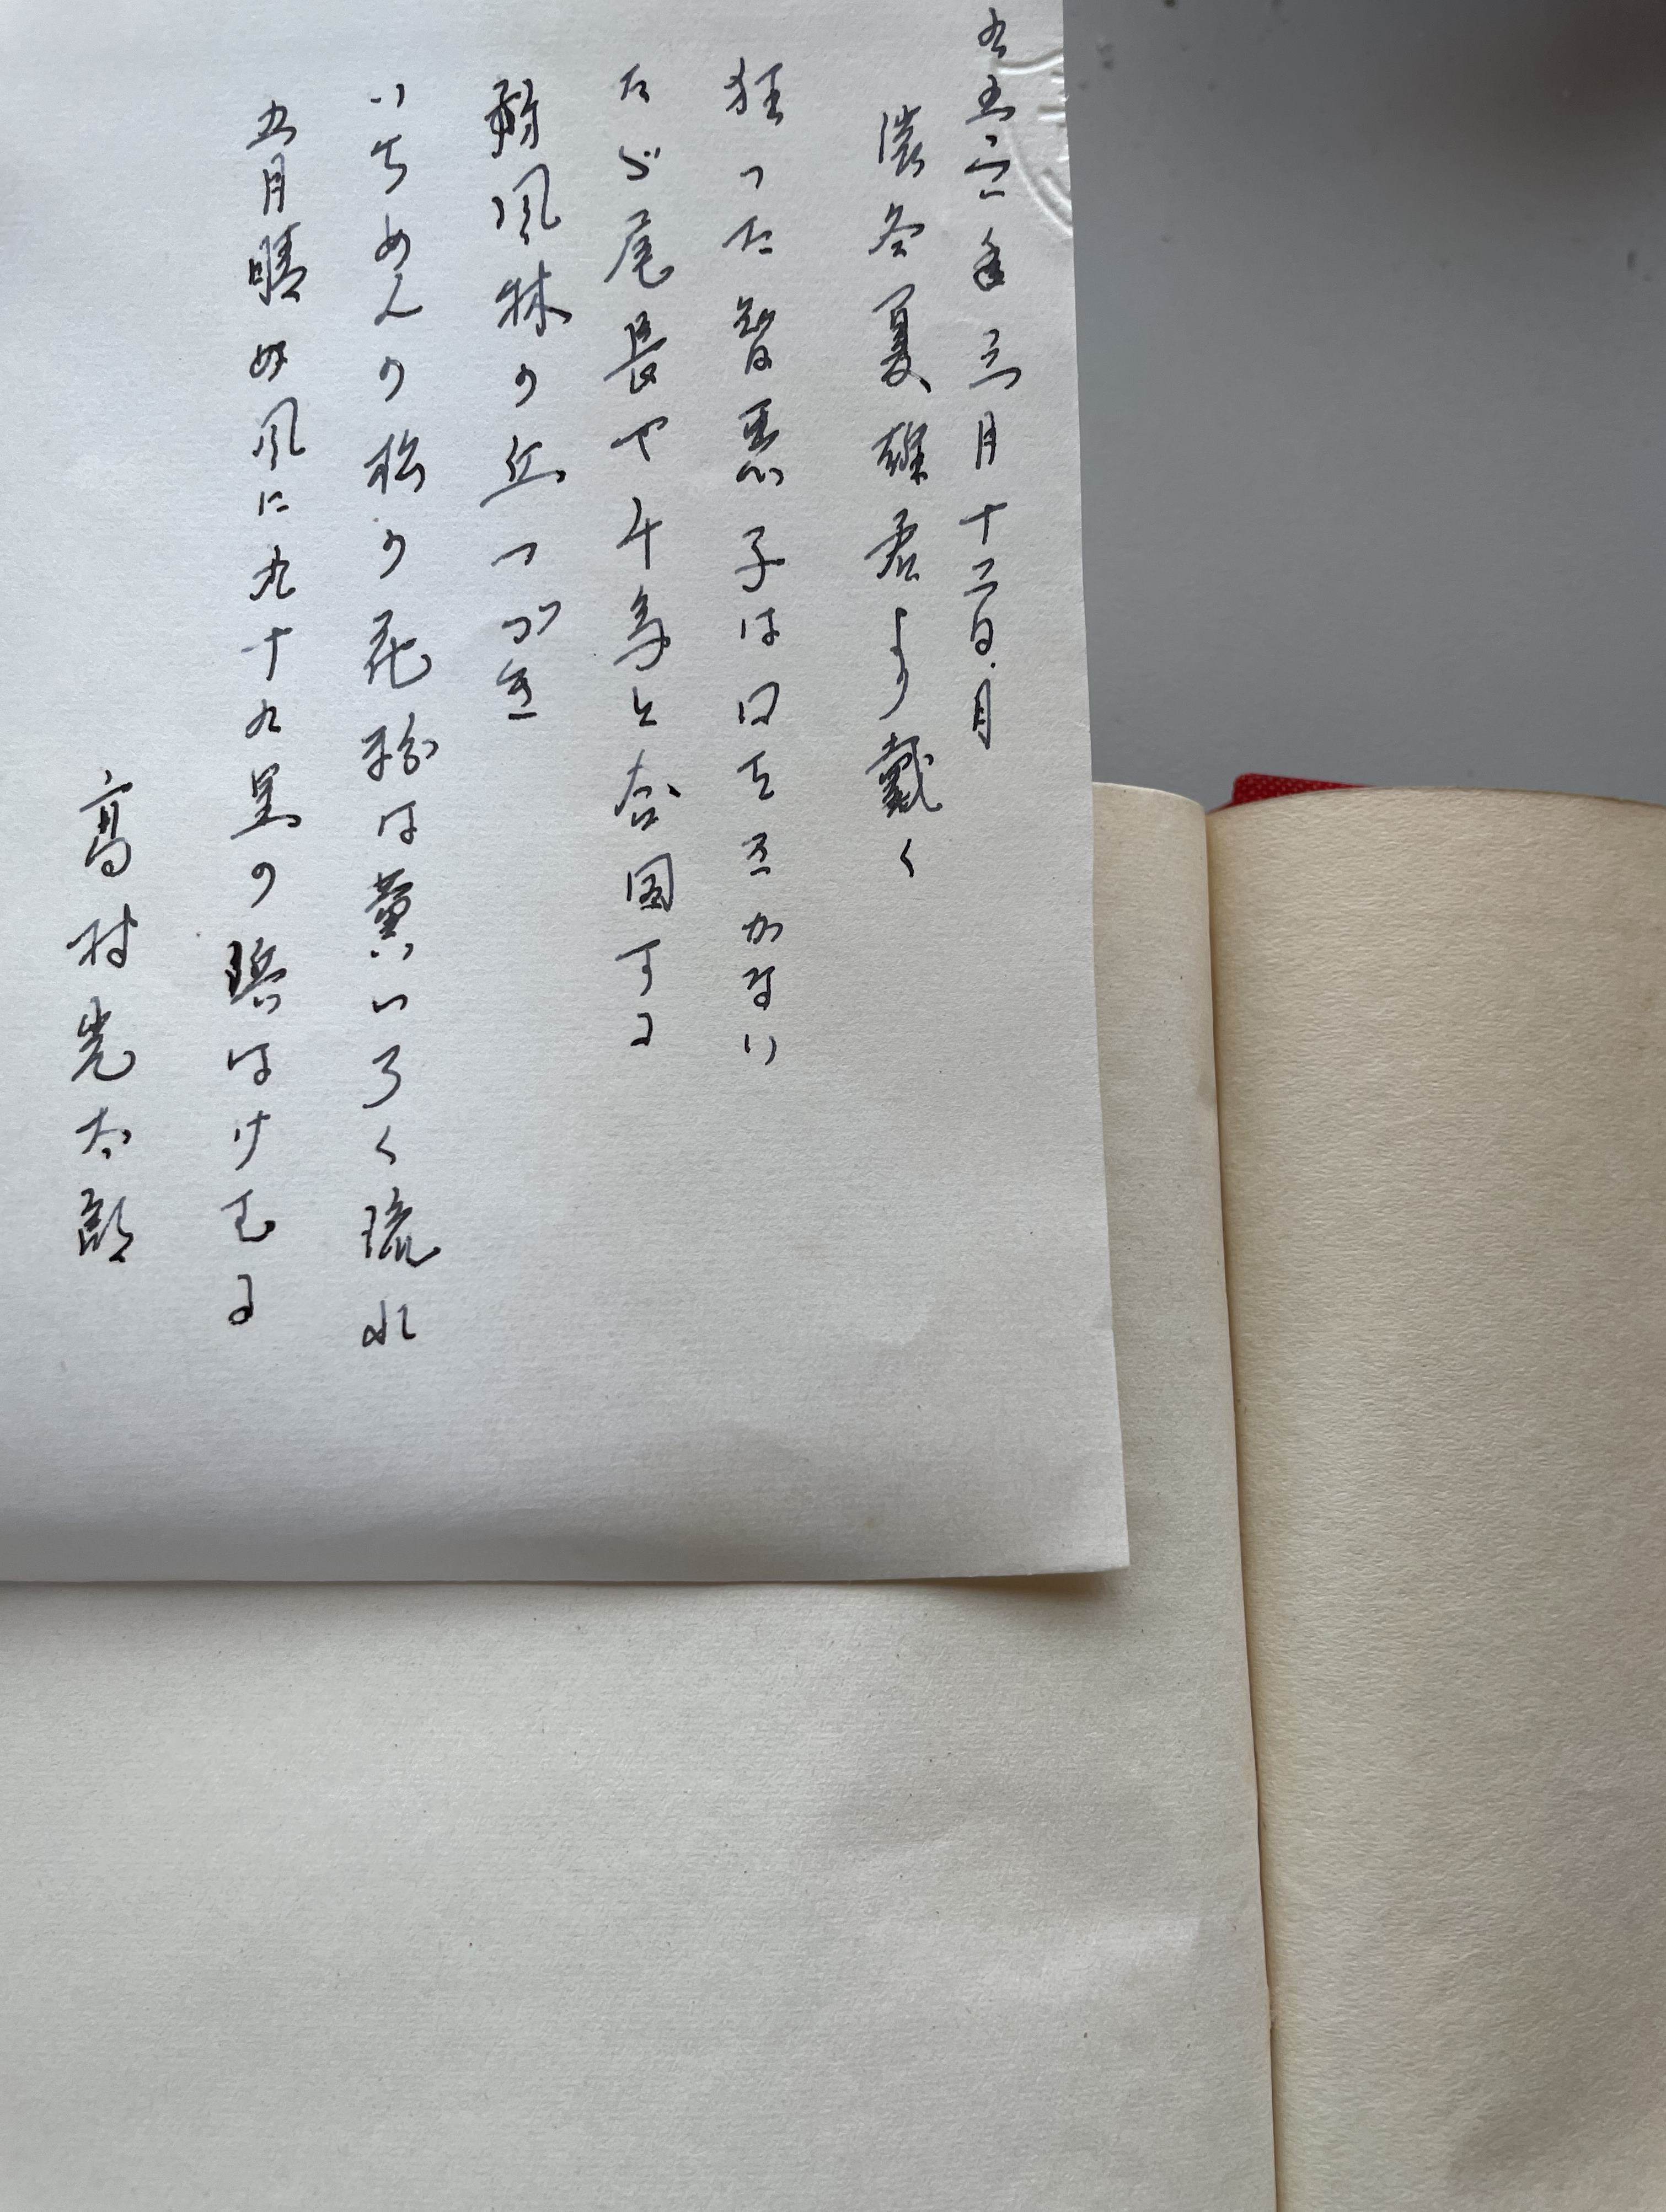 九五六年三月十二日.月
渋谷夏雄君より戴く
狂った智恵子は口をきかない
たゞ尾長や千鳥と合図する
防風林の丘つづき
いちめんの松の花粉は黄いろく流れ
五月晴の風に九十九里の浜はけむる
高村光太郎